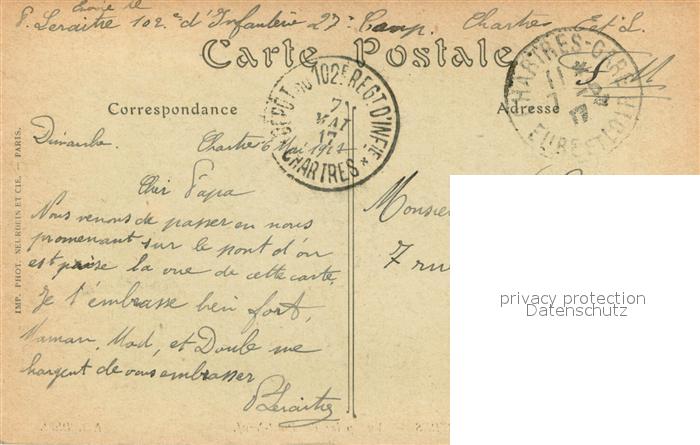 Envoi de
P. Leraitre 102e d'Infanterie 27e Comp. Chartres E et L.
S M
Carte Postale
Correspondance
Adresse
DÉPÔT DU 102E REGT D'INFIE
7
MAI
17
CHARTRES *
CHARTRES-GARE
11 *
7
17
EURE ET LOIR
Dimanche. Chartres 6 Mai 1917
Cher Papa
Nous venons de passer en nous
promenant sur le pont d'où
est prise la vue de cette carte.
Je t'embrasse bien fort,
Maman, Mad, et Doule me
chargent de vous embrasser
PLeraitre
Monsie
7 ru
IMP. PHOT. NEURDEIN ET CIE. — PARIS.
privacy protection
Datenschutz